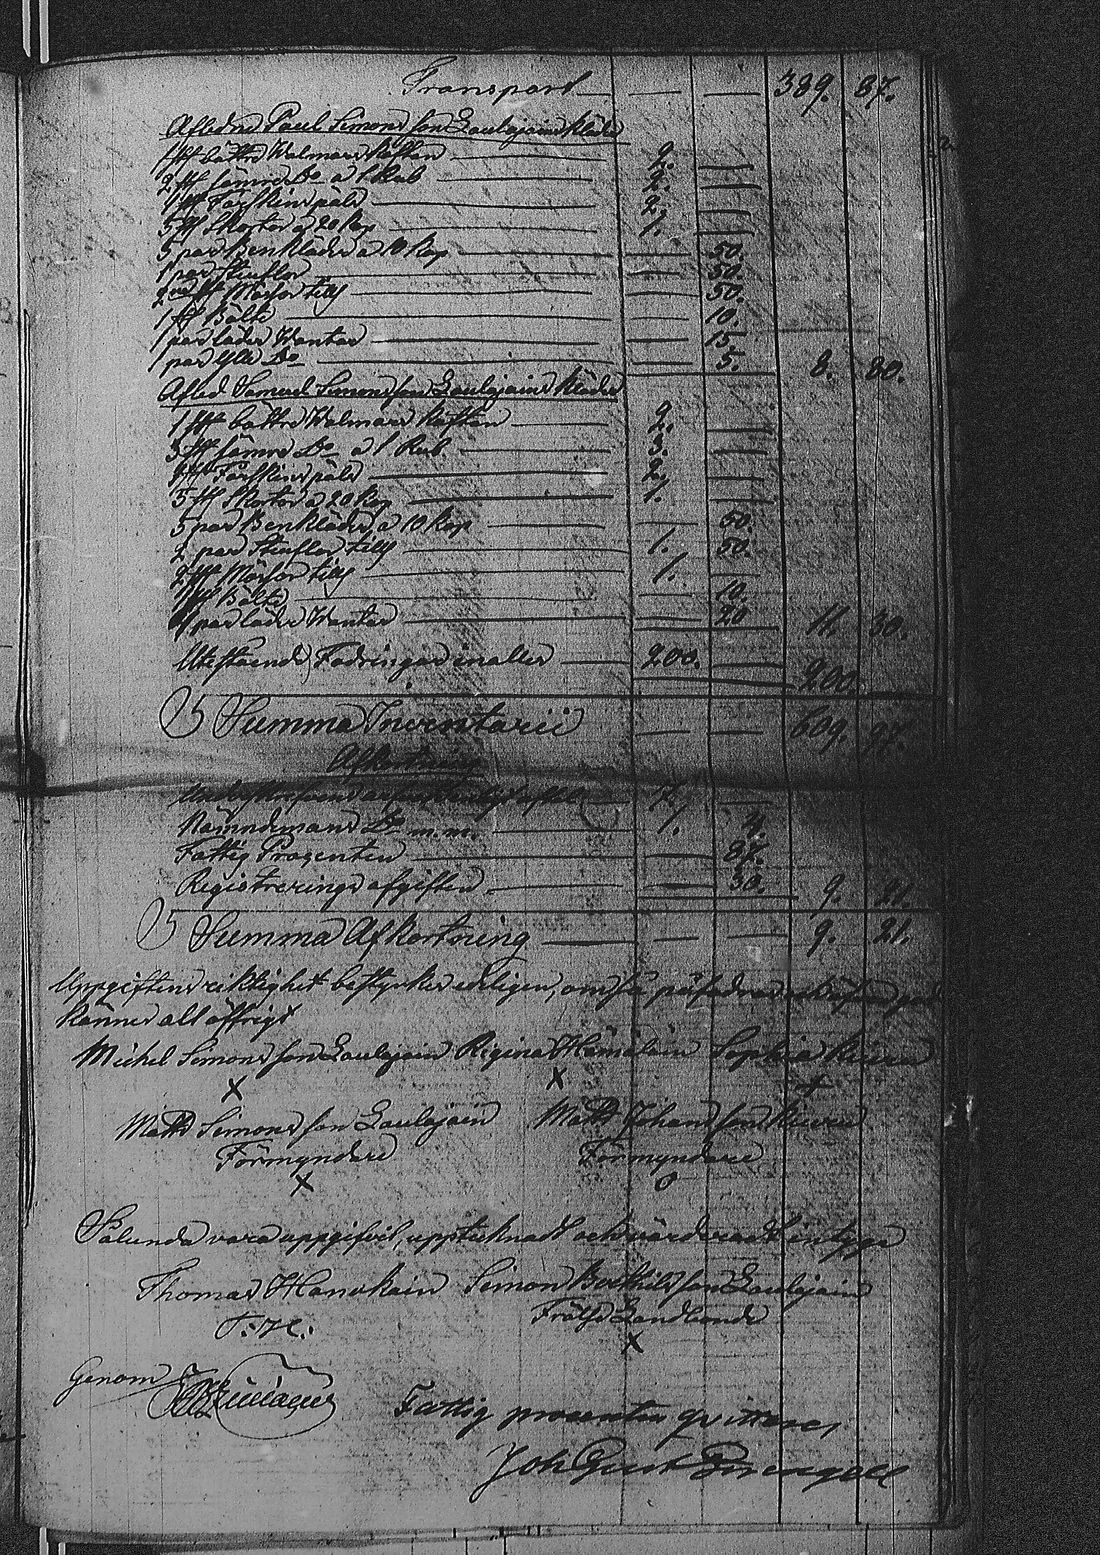 Transport — — 389. 87.
Afledne Paul Simonsson Laulajains kläder
1 st bättre Walmars kaftan — 2. —
2 st sämre Do a 1 Rub — 2. —
1 st Fårskins päls — 2. —
5 st Skortor a 20 kop — 1. —
5 par Benkläder a 10 kop — — 50.
1 par Stieflor — — 50.
2 st Mössor till — — 50.
1 st Bälte — — 10.
1 par läder Wantar — — 15.
1 par ylle Do — — 5. 8. 80.
Afled Samuel Simonsson Laulajains kläder
1 st bättre Walmars kaftan — 2. —
3 st sämre Do a 1 Rub — 3. —
1 st Fårskins päls — 2. —
5 st Skortor a 20 kop — 1. —
5 par Benkläder a 10 kop — — 50
2 par Stieflor till — 1. 50.
2 st Mössor till — 1. —
1 st Bälte — — 10.
1 par läder Wantar — — 20 11. 30.
Utestående Fodringar inalles — 200. — 200
S Summa Inventarii — — 609. 97.
Afkortning
7. —
Nämndemans Do m.m. — 1. 4.
Fattig Procenten — — 87.
Registrerings afgiften — — 30. 9. 21.
S Summa Afkortning — — — 9. 21.
Uppgiftens riktighet bestyrkes edligen, om så påfordras
känner alt öffrigt
Michel Simonsson Laulajain Regina Hämäläin Sophia
X X X
Matts Simonsson Laulajain Matts Johansson
Förmyndare Förmyndare
X O
Sålunda vara uppgifvit, upptecknadt och värderadt intyga
Thomas Simon Bertilsson Laulajain
T: H: Frälse Landbonde
X
Genom
Fattig procenten qvitteras,
Joh Gust